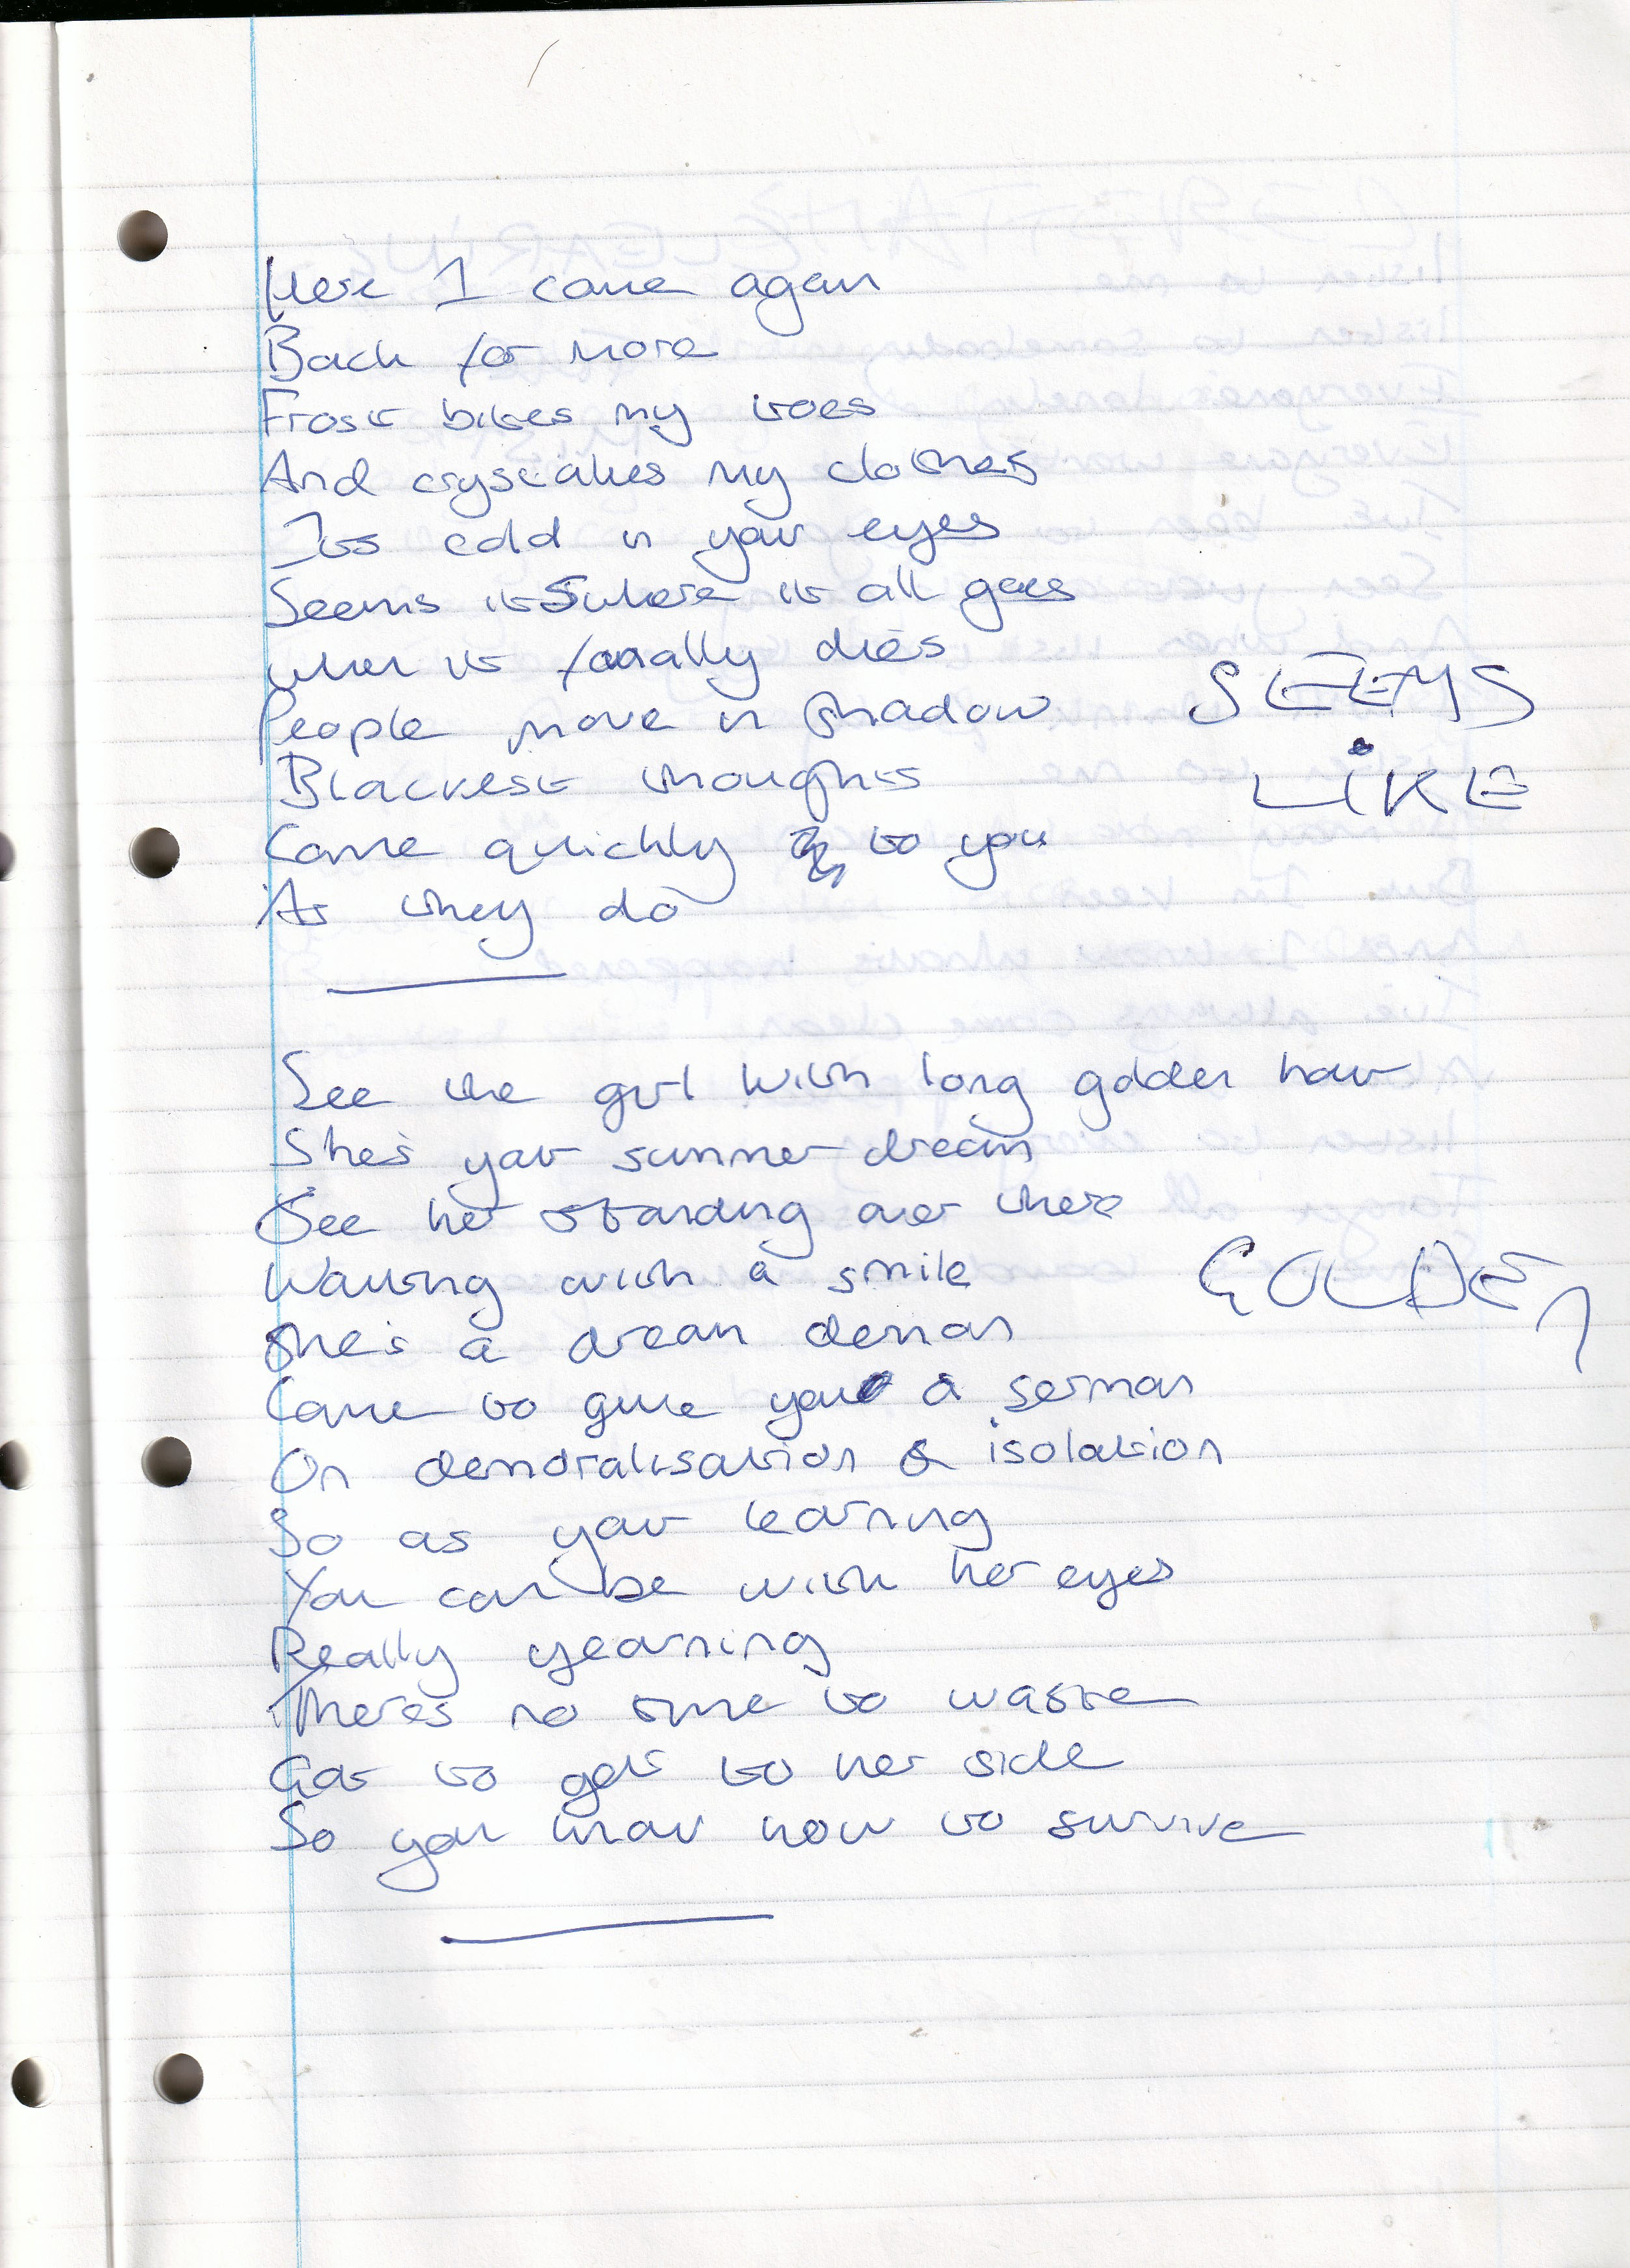 Here I come again
Back for more
Frost bites my toes
And crystalises my clothes
Its cold in your eyes
Seems its where it all goes
when it finally dies
People move in shadow
SEEMS
Blackest thoughts
LIKE
Come quickly to you
As they do
See the girl with long golden hair
She's your summer dream
See her standing over there
Waiting with a smile
GOLDEN
She's a dream demon
Come to give you a sermon
On demoralisation & isolation
So as your learning
You can be with her eyes
Really yearning
Theres no time to waste
Got to get to her side
So you know how to survive